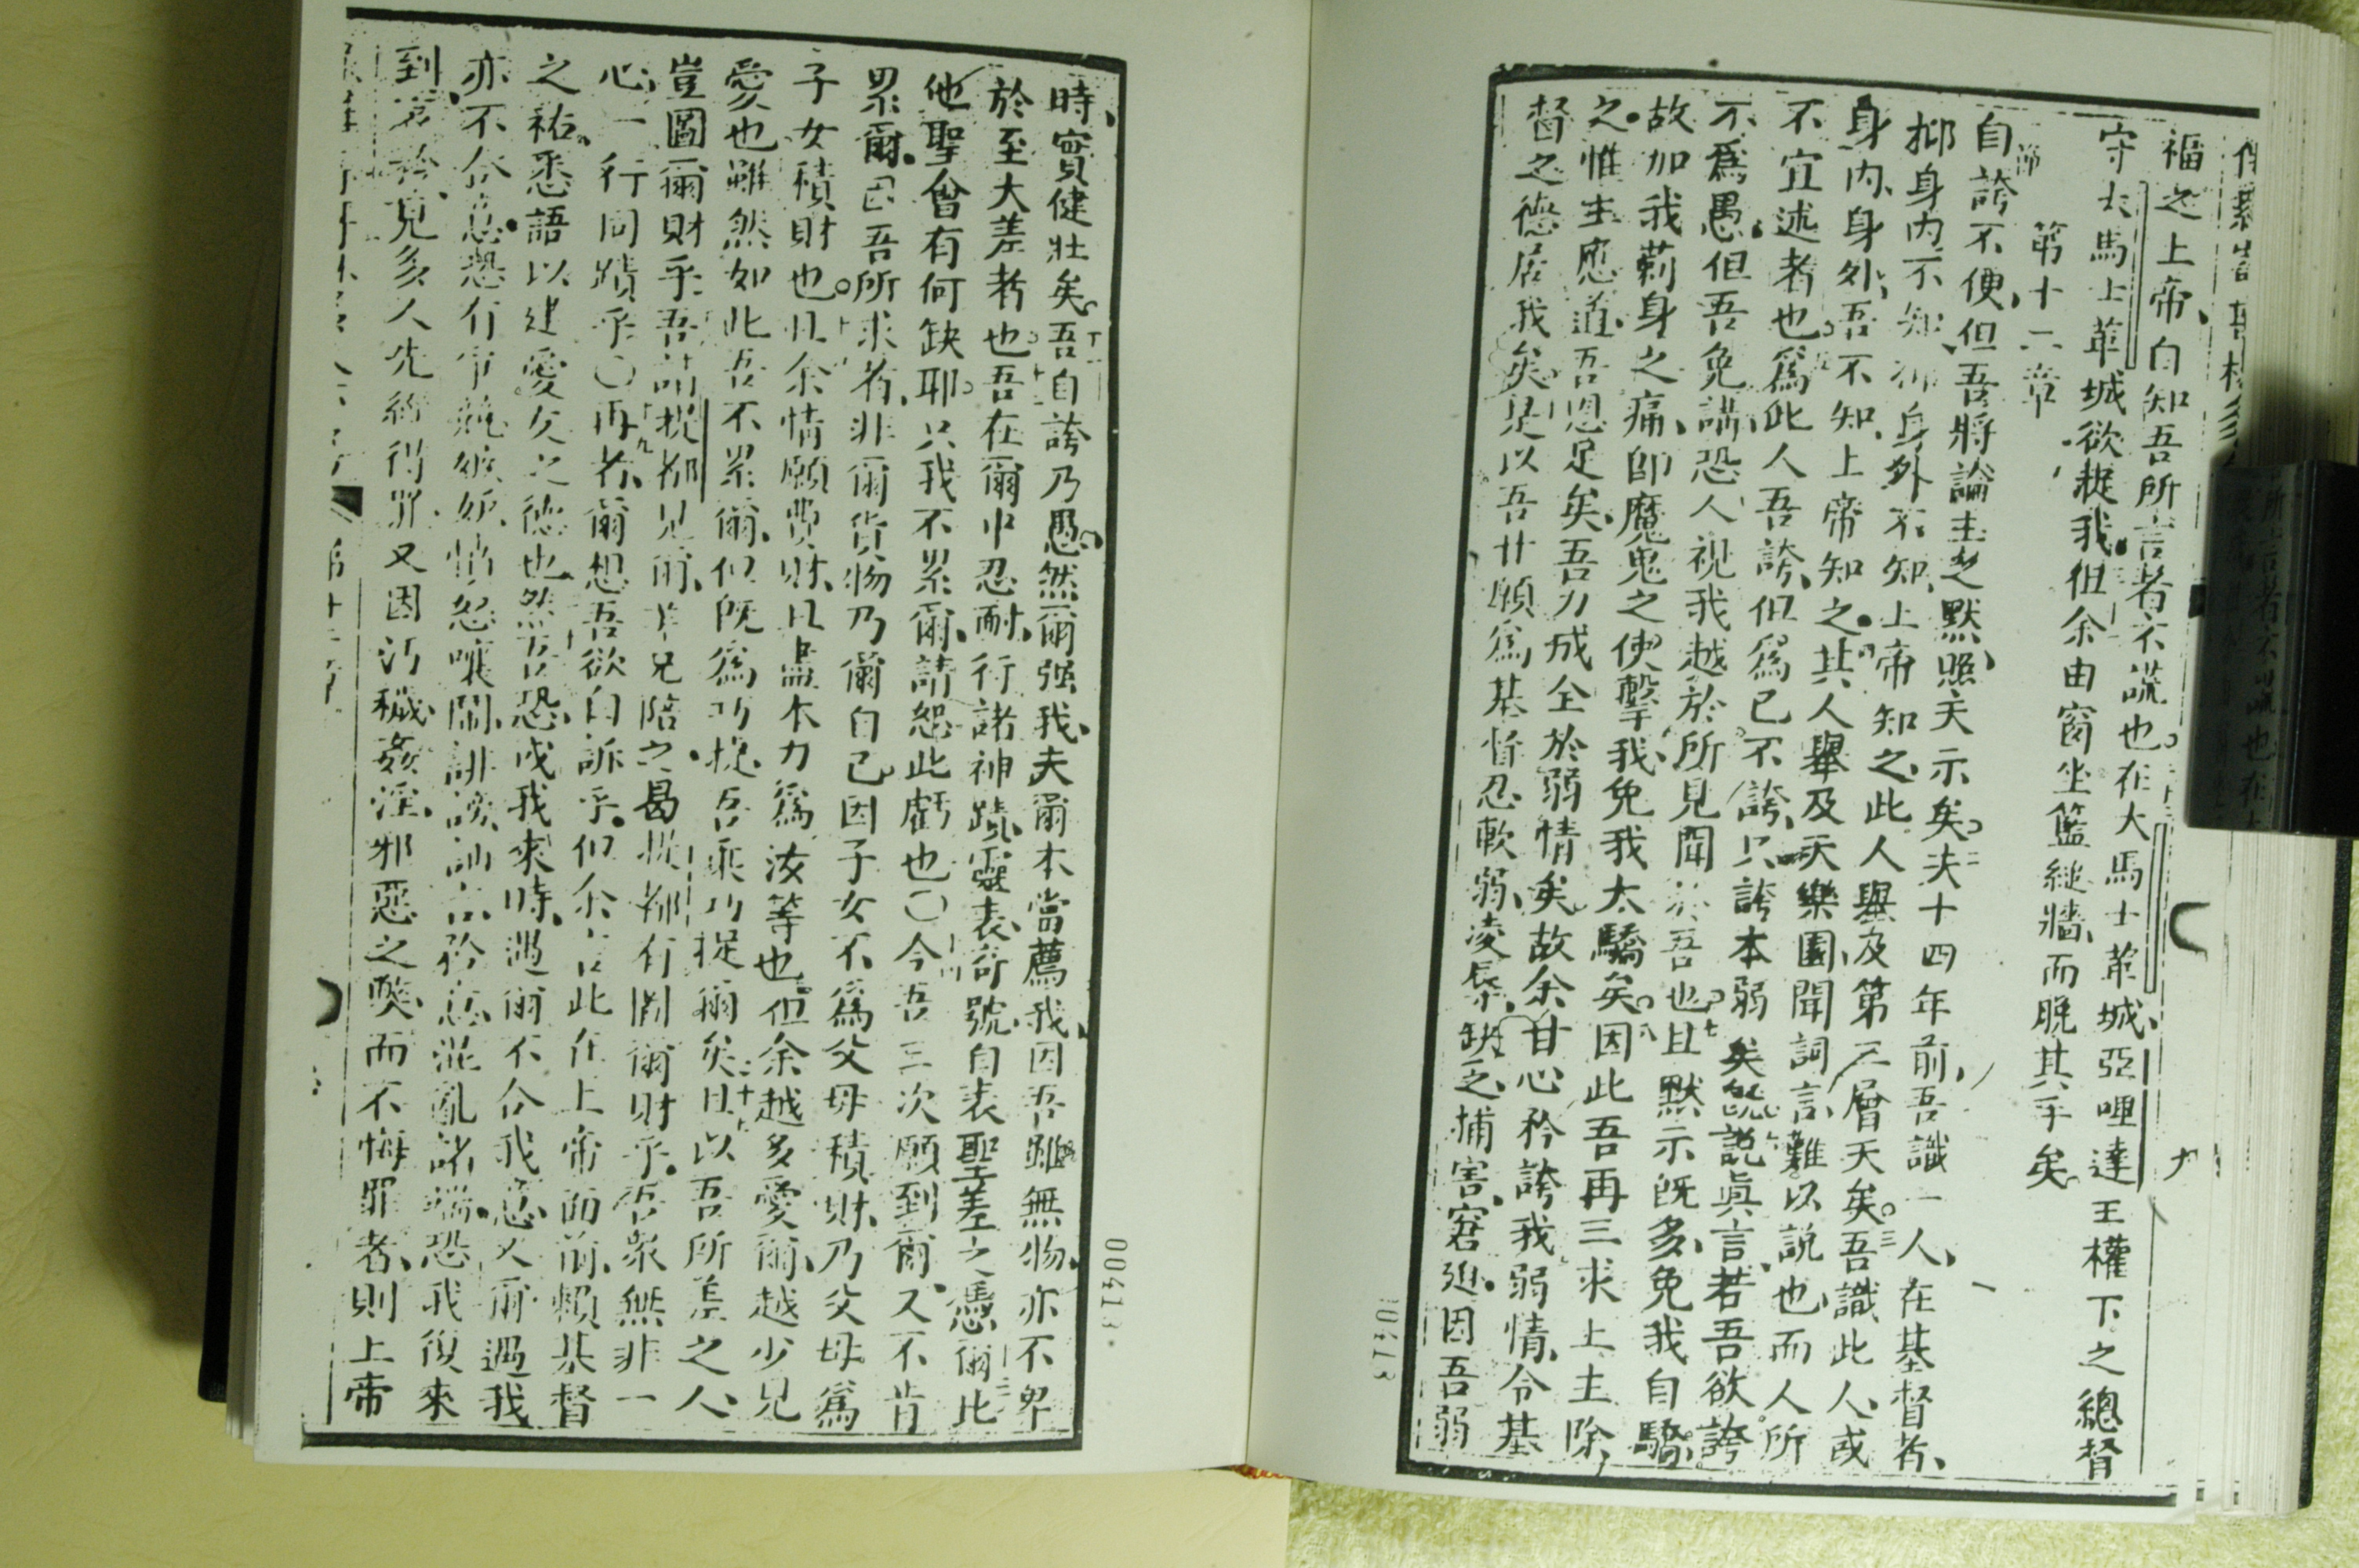 福之上帝、自知吾所言者不謊也。在大馬士革城、亞哩達王權下之總督
守大馬士革城欲捉我。但余由窗坐籃縋牆、而脫其手矣。
第十二章
自誇不便、但吾將論主之默照天示矣。夫十四年前、吾識一人、在基督者、
抑身內不知、抑身外不知、上帝知之、此人舉及第三層天矣。吾識此人、或
身內、身外、吾不知、上帝知之。其人舉及天樂園、聞詞言、難以說也、而人所
不宜述者也。為此人吾誇、但為己不誇、只誇本弱矣。說真言、若吾欲誇
不為愚。但吾免講、恐人視我越於所見聞於吾也。且默示既多、免我自驕、
故加我莿身之痛、即魔鬼之使擊我、免我太驕矣。因此吾再三求上主除
之。惟主應道、吾恩足矣、吾力成全於弱情矣。故余甘心矜誇我弱情、令基
督之德居我矣。是以吾甘願為基督忍軟弱、凌辱、缺乏、捕害、窘迫。因吾弱
九
00413
時、實健壯矣。吾自誇乃愚。然爾强我、夫爾本當薦我、因吾雖無物、亦不卑
於至大差者也。吾在爾中忍耐、行諸神蹟、靈表、奇號、自表聖差之憑。爾比
他聖會有何缺耶。只我不累爾、請恕此虧也〇今吾三次願到爾、又不肯
累爾。因吾所求者、非爾貨物、乃爾自己。因子女不為父母積財、乃父母為
子女積財也。且余情願費財、且盡本力為汝等也。但余越多愛爾、越少見
愛也。雖然如此、吾不累爾。但既為巧捉、吾乘巧捉爾矣。且以吾所差之人、
豈圖爾財乎。吾請提都見爾、並兄陪之。曷提都有圖爾財乎。吾眾無非一
心、一行同蹟乎〇再者、爾想吾欲自訴乎。但余言此在上帝面前、賴基督
之祐。悉語以建愛友之德也。然吾恐、或我來時、遇爾不合我意、又爾遇我
亦不合意。恐有爭競、嫉妒、惱怒、嚷鬧、誹謗、訕言、矜意、混亂諸端。恐我復來
到、見多人先經得罪、又因污穢、姦淫、邪惡之獘、而不悔罪者、則上帝
00413